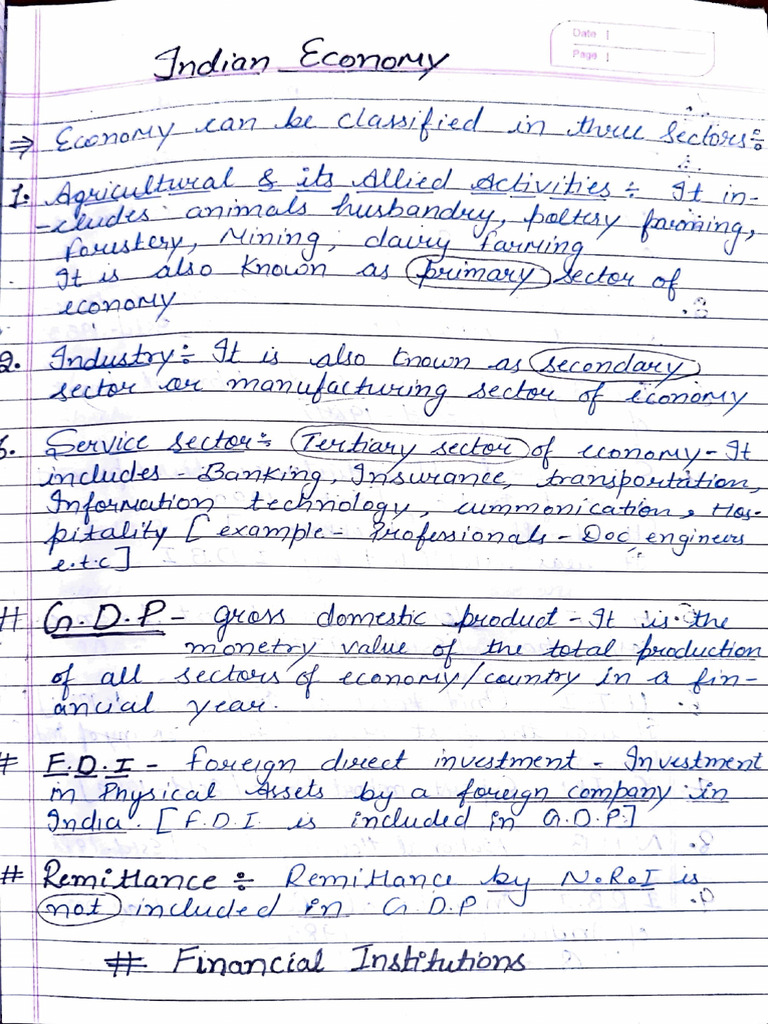 Date
Page
Indian Economy
⇒ Economy can be classified in three sectors÷
1. Agricultural & its Allied Activities ÷ It in-
-cludes animals husbandry, poltery farming,
forestery, Mining, dairy farming
It is also known as primary sector of
economy
2. Industry÷ It is also known as secondary
sector or manufacturing sector of economy
3. Service sector÷ Tertiary sector of economy - It
includes - Banking, Insurance, transportation,
Information technology, cummonication, Hos-
pitality [example - Professionals - Doc, engineers
e.t.c]
# G.D.P - gross domestic product - It is the
monetry value of the total production
of all sectors of economy/country in a fin-
ancial year.
# F.D.I - foreign direct investment - Investment
in Physical Assets by a foreign company in
India. [F.D.I. is included in G.D.P.]
# Remittance ÷ Remittance by N.R.I is
not included in G.D.P
# Financial Institutions